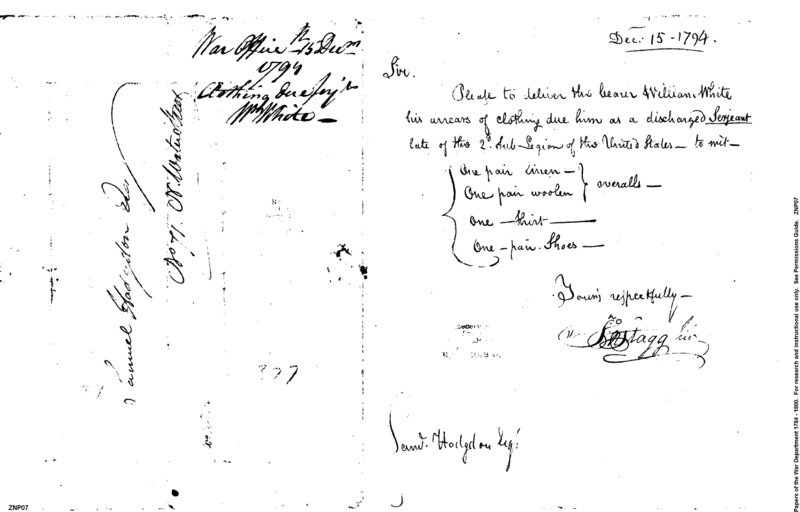 War Office 15 Decm
1794
Clothing due Serjt
Wm White —
Samuel Hodgdon Esqr
No 71. N. Water Street
Dec: 15 - 1794.
Sir.
Please to deliver the bearer William White
his arrears of clothing due him as a discharged Serjeant
late of the 2d. Sub-Legion of the United States — to wit —
One pair linen —
One pair woolen } overalls —
One — Shirt ———
One - pair. Shoes —
Yours respectfully —
Jno Stagg Junr
Saml. Hodgdon Esqr.
ZNP07
Papers of the War Department 1784 - 1800. For research and instructional use only. See Permissions Guide. ZNP07